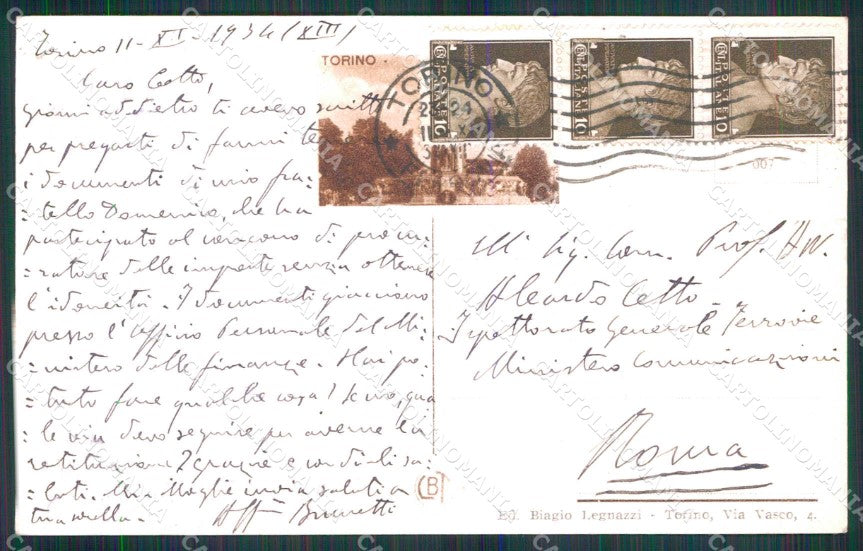 Torino 11-XI-1934 (XIII)
Caro Cetto,
giorni addietro ti avevo scritto
per pregarti di farmi
i documenti di mio fra-
=tello Domenico, che ha
partecipato al concorso di procu-
=ratore delle imposte senza ottenere
l'idoneità. I documenti giacciono
presso l'Ufficio Personale del Mi-
=nistero delle finanze. Hai po-
=tuto fare qualche cosa? Se no, qua-
le via devo seguire per averne la
restituzione? Grazie e cordiali sa-
=luti. Mia Moglie invia saluti a
tua
Aff. Brunetti
TORINO
TORINO
POSTE ITALIANE
CENT. 10
POSTE ITALIANE
CENT. 10
POSTE ITALIANE
CENT. 10
007
Ill. Sig. Com. Prof. Avv.
Aleardo Cetto
Ispettorato Generale Ferrovie
Ministero Comunicazioni
Roma
(B)
Ed. Biagio Legnazzi - Torino, Via Vasco, 4.
CARTOLINOMANIA